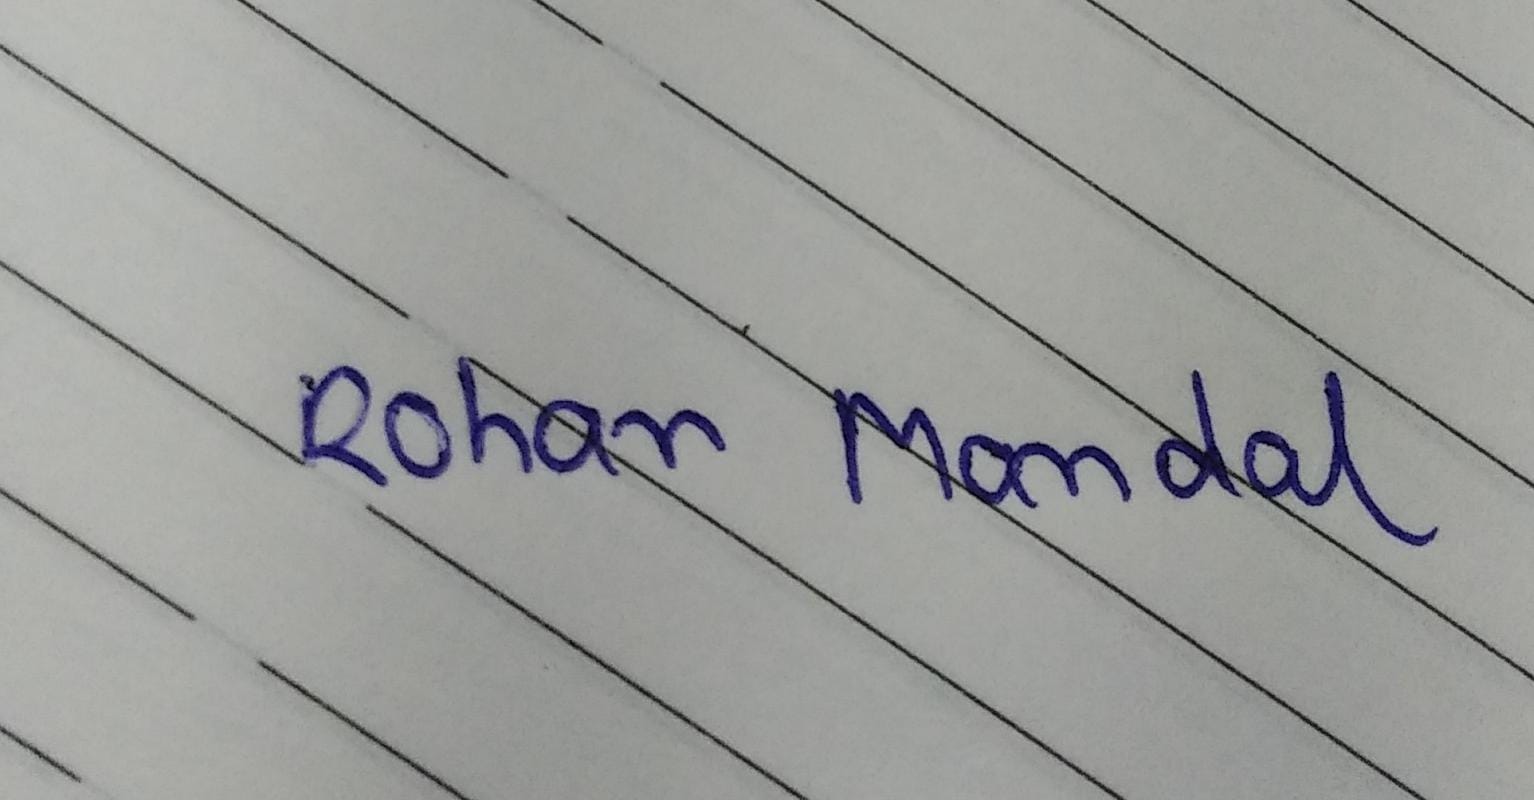 Rohan Mondal